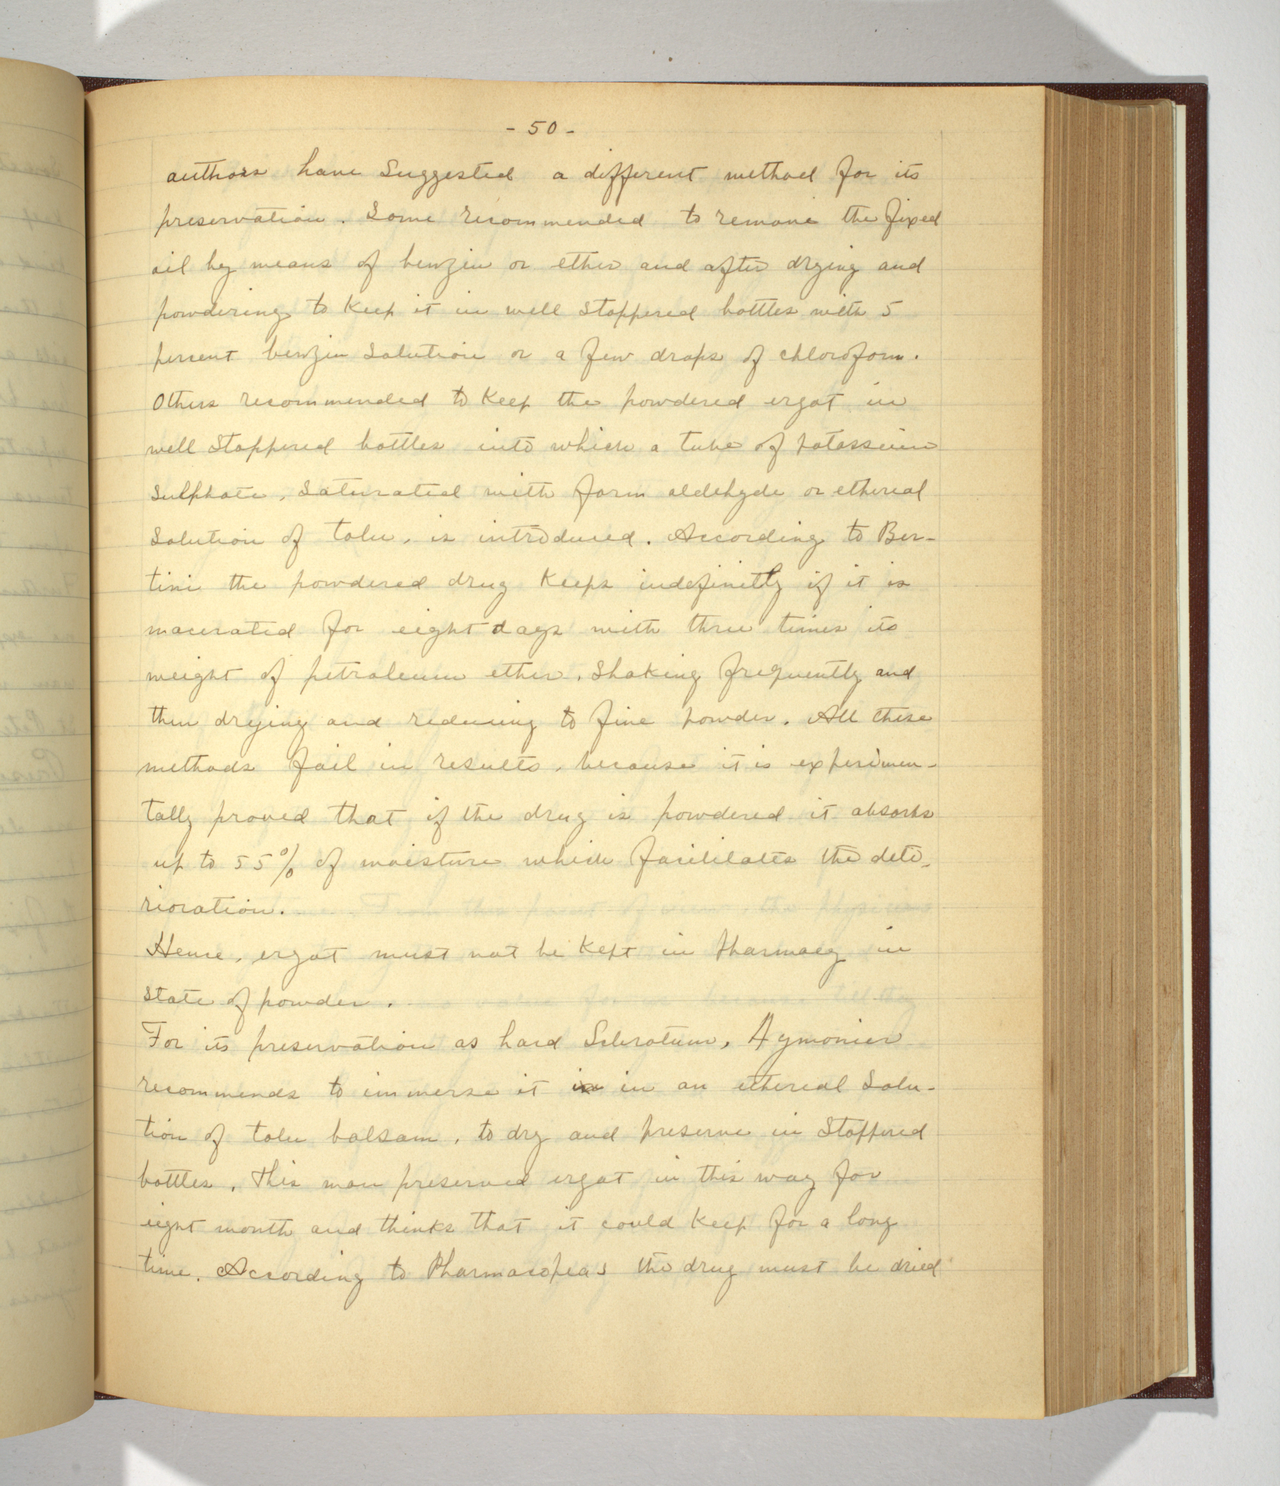 - 50 -
authors have Suggested a different method for its
preservation. Some recommended to remove the fixed
oil by means of benzin or ether and after drying and
powdering to Keep it in well Stoppered bottles with 5
percent benzin Solution or a few drops of chloroform.
Others recommended to Keep the powdered ergot in
well Stoppered bottles into which a tube of potassium
Sulphate, Saturated with form aldehyde or ethereal
Solution of tolu, is introduced. According to Ber-
tini the powdered drug Keeps indefinitly if it is
macerated for eight days with three times its
weight of petroleum ether, Shaking frequently and
then drying and reducing to fine powder. All these
methods fail in results, because it is experimen-
tally proved that if the drug is powdered it absorbs
up to 55% of moisture which facilitates the dete-
rioration.
Hence, ergot must not be Kept in Pharmacy in
State of powder.
For its preservation as hard Sclerotium, Aymonier
recommends to immerse it in in an ethereal Solu-
tion of tolu balsam, to dry and preserve in Stoppered
bottles. This man preserved ergot in this way for
eight month and thinks that it could Keep for a long
time. According to Pharmacopeas the drug must be dried